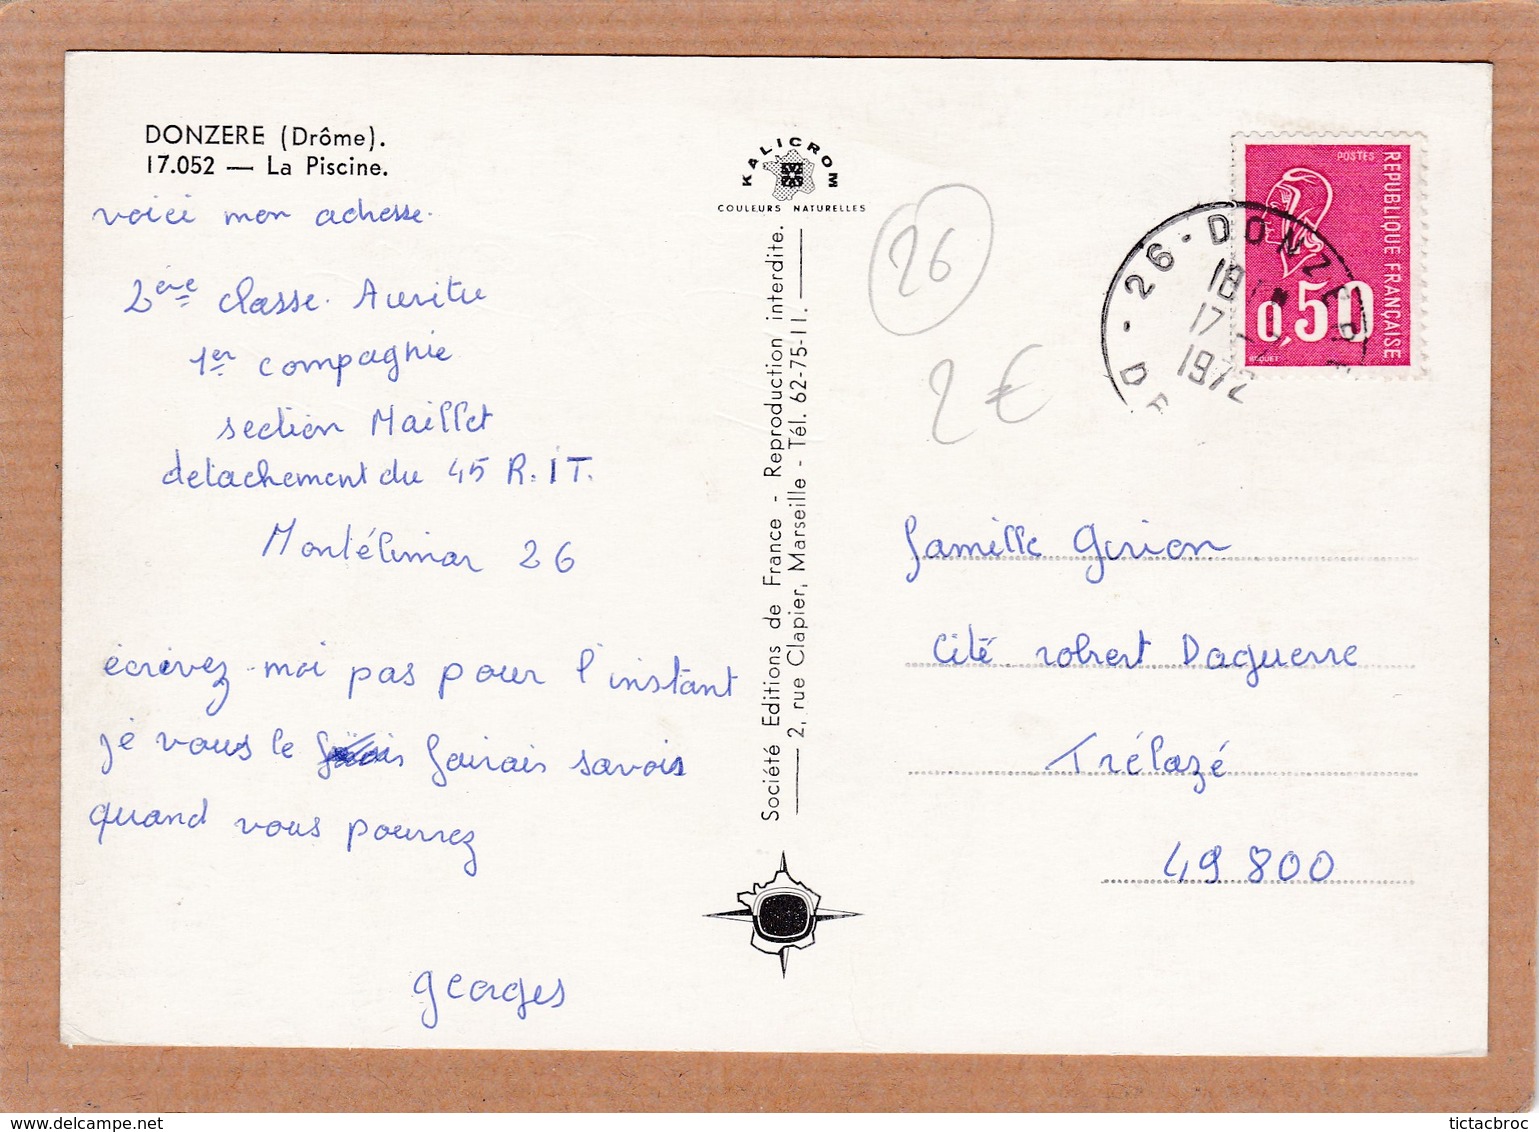 DONZERE (Drôme).
17.052 — La Piscine.
voici mon adresse.
2ère classe. Auritu
1er compagnie
section Maillet
detachement du 45 R.IT.
Montélimar 26
écrivez-moi pas pour l'instant
je vous le fairais savois
quand vous pourrez
georges
KALICROM
COULEURS NATURELLES
Société Editions de France - Reproduction interdite.
2, rue Clapier, Marseille - Tél. 62-75-11.
26
2€
26 - DONZERE
18H
17 - 7
1972
DR
POSTES
REPUBLIQUE FRANÇAISE
0,50
BEQUET
famille Gorion
Cité robert Daguerre
Trélazé
49 800
www.delcampe.net
tictacbroc